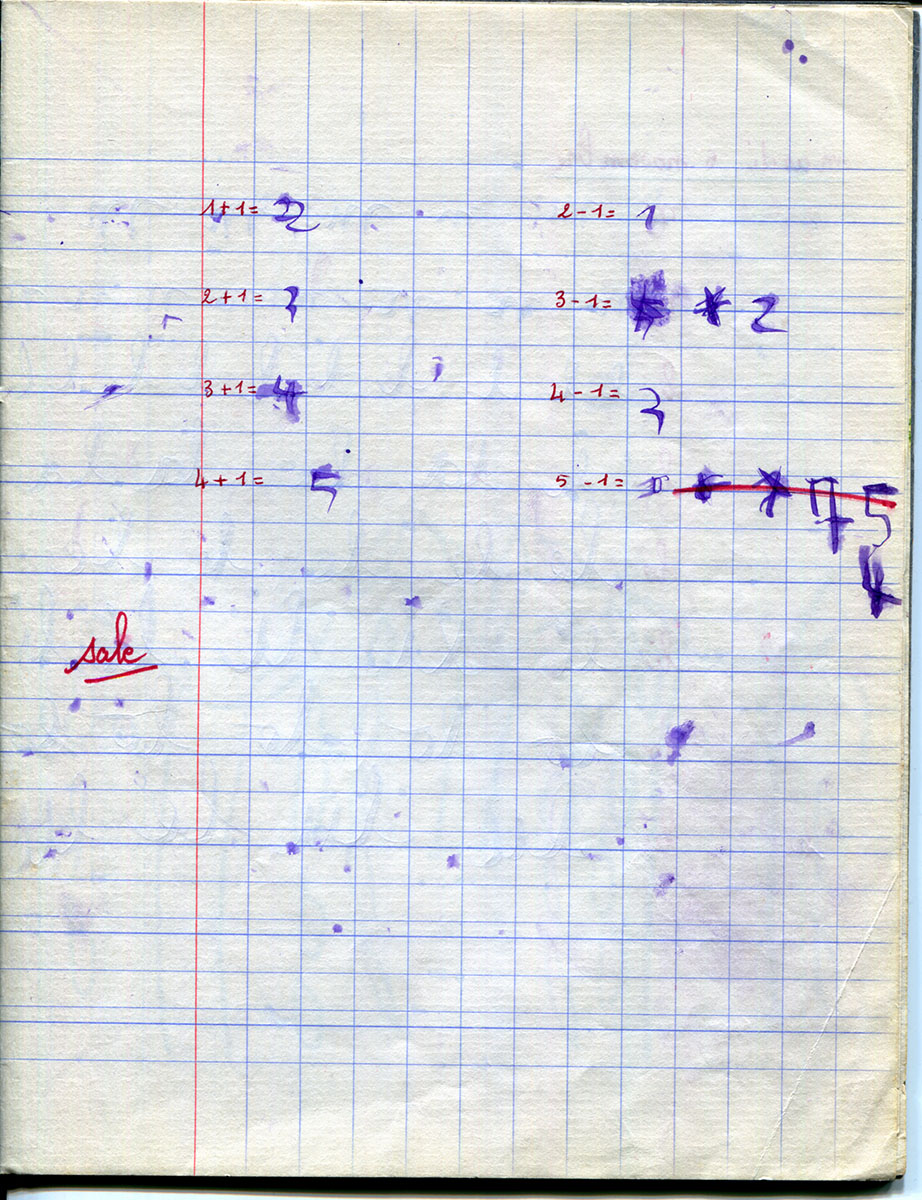 1+1= 2 2-1= 1
2+1= 3 3-1= 2
3+1= 4 4-1= 3
4+1= 5 5-1= 5
4
sale